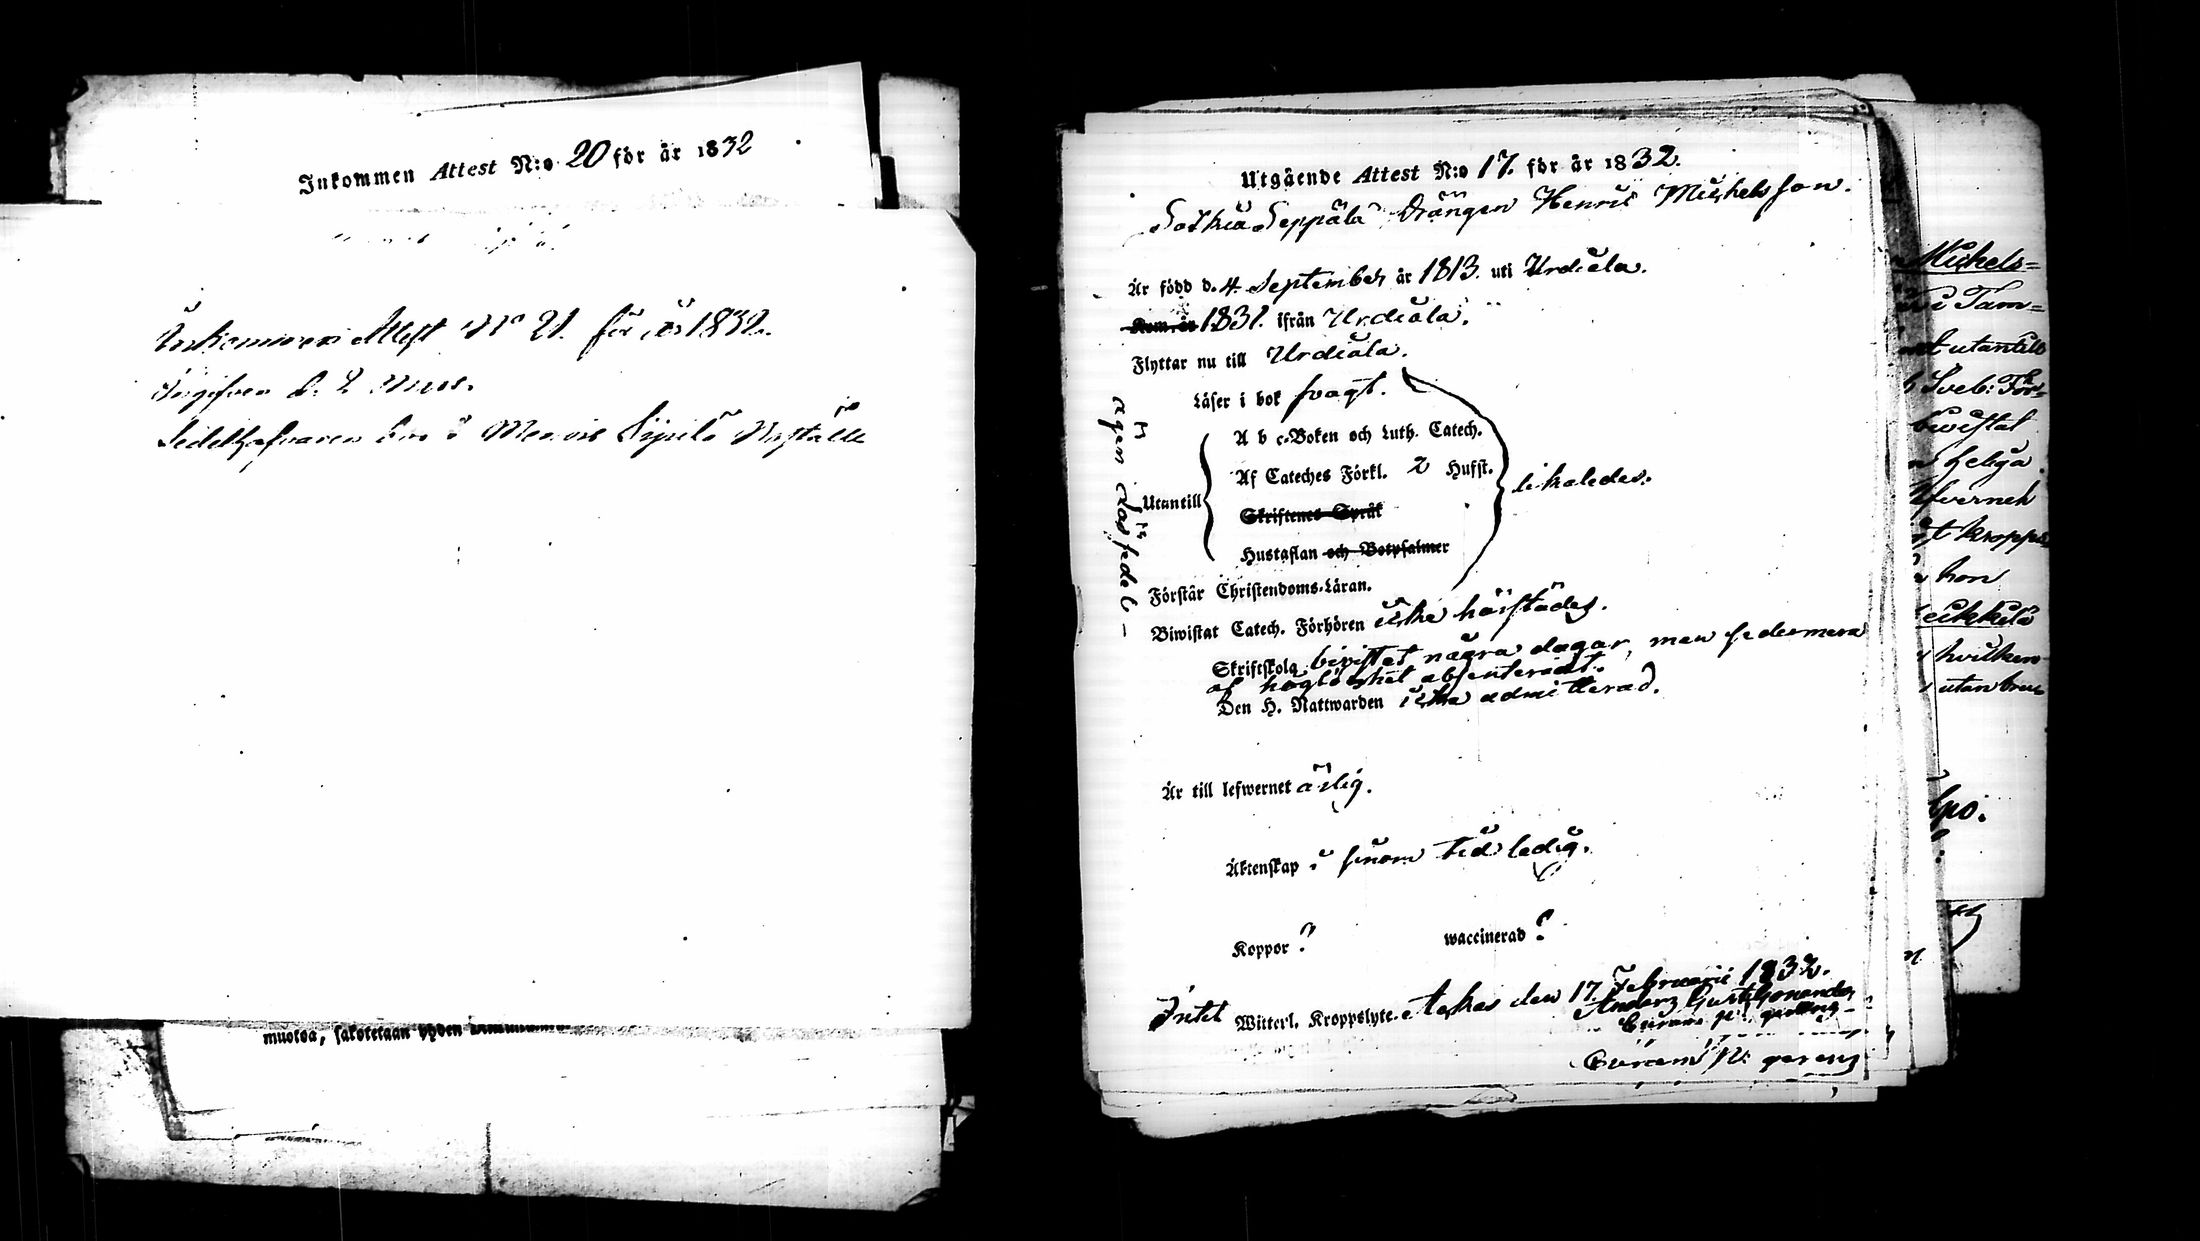 Inkommen Attest N:o 20 för år 1832
Inkommen Attest No 21. för år 1832.
Ingifven d. 2 Mars.
Sedelhafvaren bor i
muotoa, sakotetaan yhden
Utgående Attest N:o 17. för år 1832.
Seppälä Drängen Henric Michelsson.
Är född d. 4 September år 1813. uti Urdiala.
Kom år 1831. ifrån Urdiala.
Flyttar nu till Urdiala.
Läser i bok svagt.
A b c-Boken och Luth. Catech.
Af Cateches Förkl. 2 Hufst.
likaledes.
Utantill
Skriftenes Språk
Hustaflan och Botpsalmer
Förstår Christendoms-Läran.
Biwistat Catech. Förhören icke härstädes.
Skriftskola bivistat några dagar, men sedermera
af högloshet absenterat.
Den H. Nattwarden icke admitterad.
Är till lefwernet ärlig.
Äktenskap i sinom tid ledig.
Koppor ? waccinerad ?
Intet Witterl. Kroppslyte. Ackas den 17. Februarii 1832.
äger Lässedel
Michels=
i Tam=
utantill
Sveb: För=
bivistat
heliga
hon
hvilken
utan